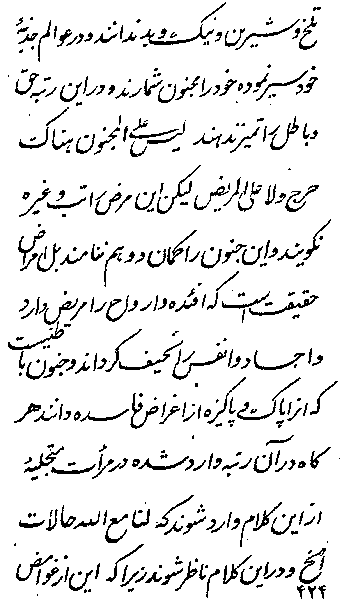 تلخ و شیرین و نیک و بد ندانند و در عوالم جذبهٔ
خود سیر نموده خود را مجنون شمارند و در این رتبه حق
و باطل را تمیز ندهند لیس علی المجنون هناک
حرج و لا علی المریض لیکن این مرض را تب و غیره
نگویند و این جنون را حکمای دو هم ننامند بل امراض
حقیقت است که افئده و ارواح را مریض دارد
و اجساد و انفس را نحیف گرداند و جنون با طبیست
که انرا پاک و پاکیزه از اغراض فاسده دانند هر
گاه در آن رتبه وارد شده در مرآت متجلیهٔ
از این کلام وارد شوند که لنا مع الله حالات
الخ و در این کلام ناظر شوند زیرا که این از غوامض
۴۲۴